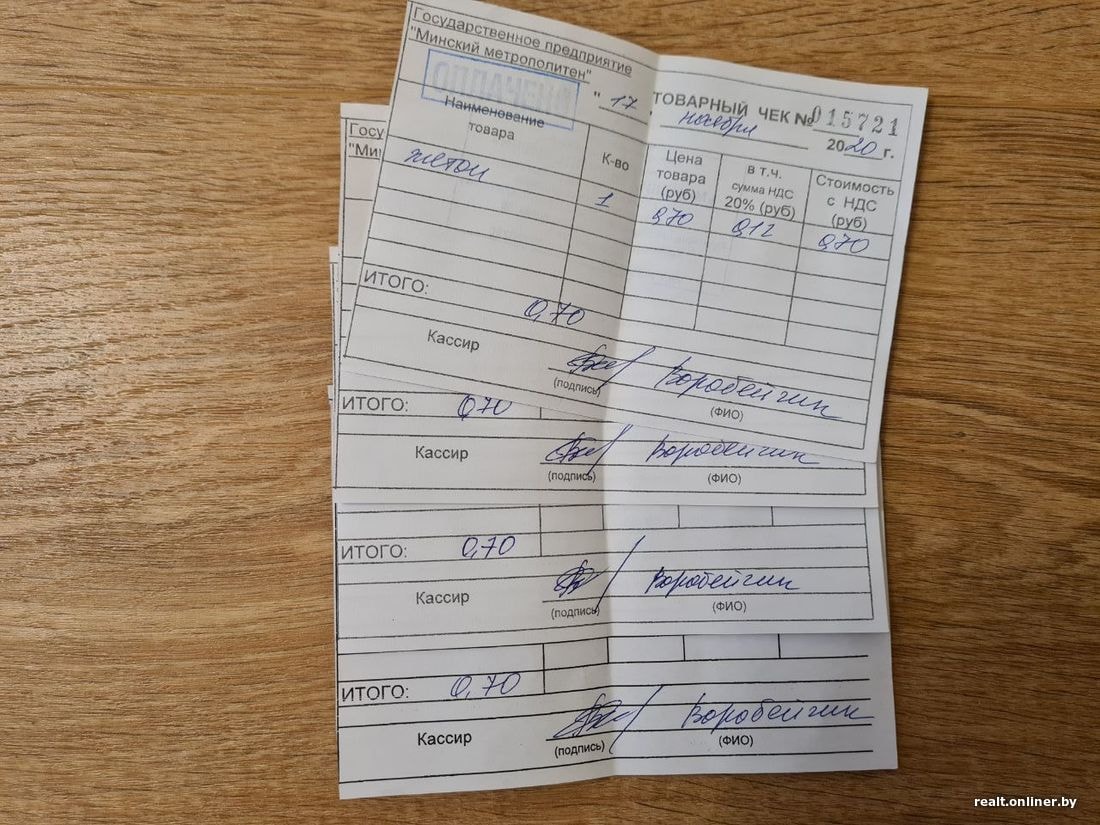 Государственное предприятие
"Минский метрополитен"
ОПЛАЧЕНО
ТОВАРНЫЙ ЧЕК № 015721
"17" ноября 2020 г.
Наименование товара
К-во
Цена товара (руб)
в т.ч. сумма НДС 20% (руб)
Стоимость с НДС (руб)
жетон 1 0,70 0,12 0,70
ИТОГО: 0,70
Кассир
Воробейчик
(подпись) (ФИО)
Госу
"Мин
ИТОГО: 0,70
Кассир Воробейчик
(подпись) (ФИО)
ИТОГО: 0,70
Кассир Воробейчик
(подпись) (ФИО)
ИТОГО: 0,70
Кассир Воробейчик
(подпись) (ФИО)
realt.onliner.by